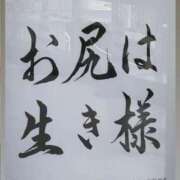 お尻は
生き様